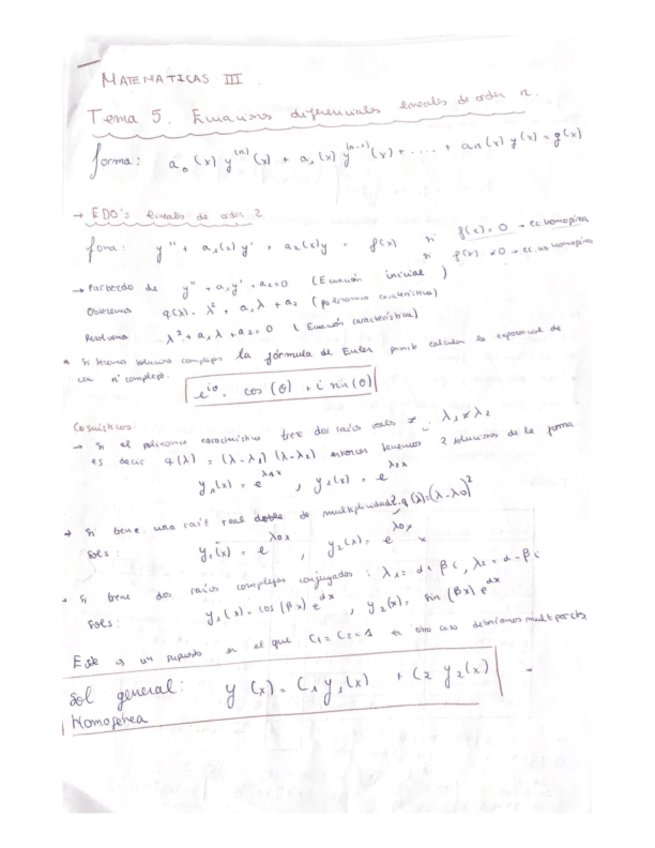 MATEMATICAS III
Tema 5. Ecuaciones diferenciales lineales de orden n.
forma: a₀(x) y⁽ⁿ⁾(x) + a₁(x) y⁽ⁿ⁻¹⁾(x) + .... + an(x) y(x) = g(x)
→ EDO's lineales de orden 2
forma: y'' + a₁(x) y' + a₂(x)y = f(x) si f(x) = 0 → ec. homogénea
si f(x) ≠ 0 → ec. no homogénea
→ Partiendo de y'' + a₁y' + a₂=0 (Ecuación inicial)
Obtenemos q(λ) = λ² + a₁λ + a₂ (polinomio característico)
Resolvemos λ² + a₁λ + a₂ = 0 (Ecuación característica)
Si tenemos soluciones complejas la fórmula de Euler permite calcular la exponencial de
un nº complejo.
e^{iθ} = cos(θ) + i sin(θ)
→ Si el polinomio característico tiene dos raíces reales ≠ : λ₁ ≠ λ₂
es decir q(λ) = (λ-λ₁)(λ-λ₂) entonces tenemos 2 soluciones de la forma
y₁(x) = e^{λ₁x} , y₂(x) = e^{λ₂x}
→ Si tiene una raíz real doble de multiplicidad 2: q(λ)=(λ-λ0)²
Sols: y₁(x) = e^{λ0x} , y₂(x) = e^{λ0x} x
Si tiene dos raíces complejas conjugadas : λ₁ = α + βi , λ₂ = α - βi
Sols: y₁(x) = cos(βx) e^{αx} , y₂(x) = sin(βx) e^{αx}
Este es un supuesto en el que C₁ = C₂ = 1 en otro caso
Sol general: y(x) = C₁ y₁(x) + C₂ y₂(x)
Homogénea